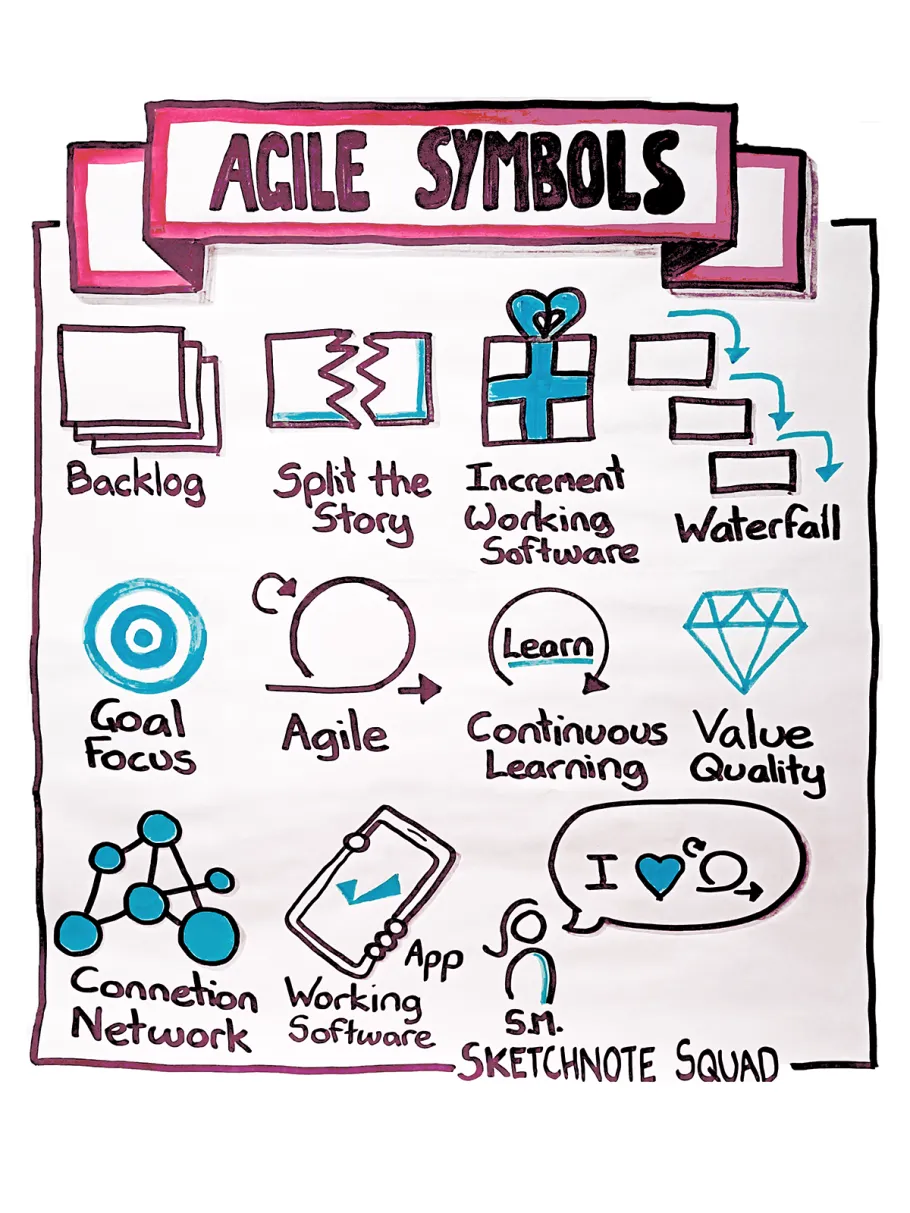 AGILE SYMBOLS
Backlog
Split the
Story
Increment
Working
Software
Waterfall
Goal
Focus
Agile
Learn
Continuous
Learning
Value
Quality
Connetion
Network
App
Working
Software
I
S.M.
SKETCHNOTE SQUAD